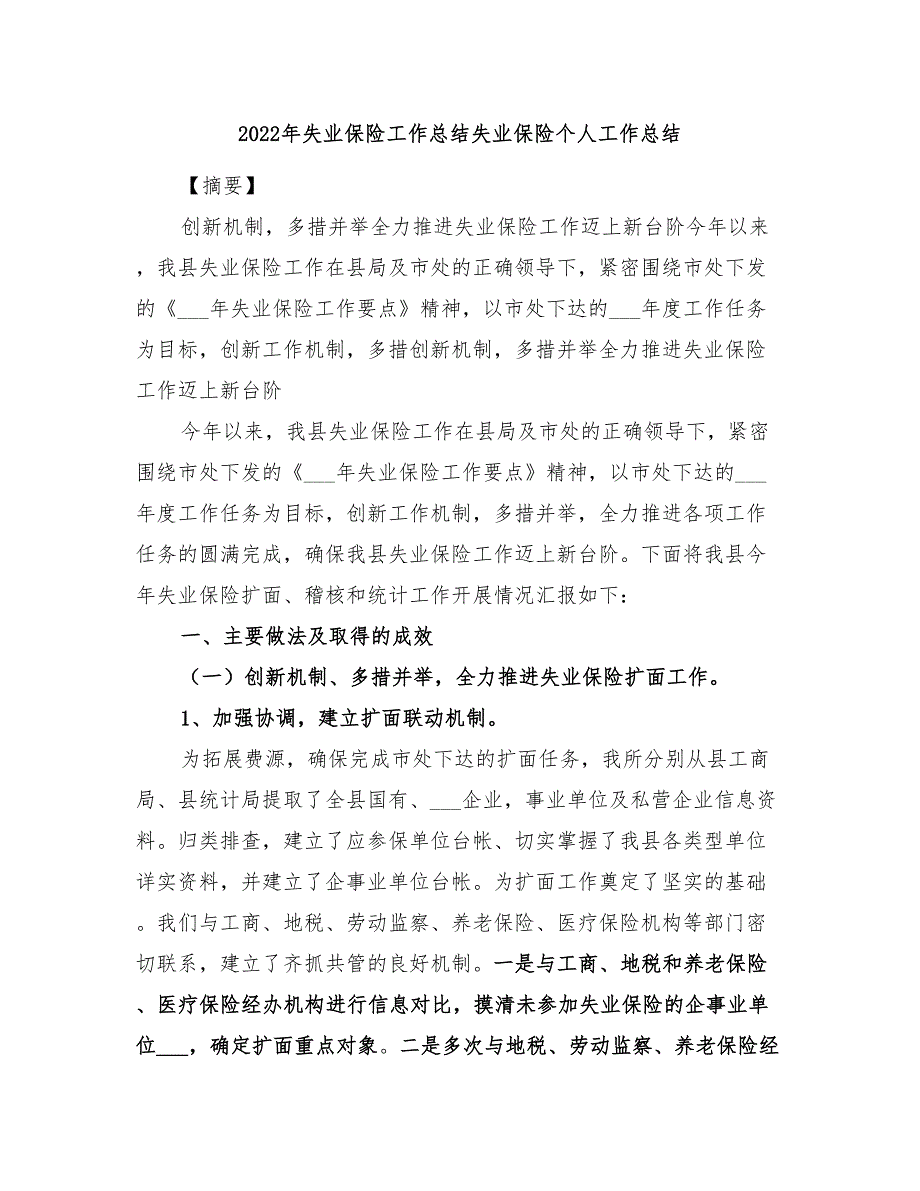 2022年失业保险工作总结失业保险个人工作总结
【摘要】
创新机制，多措并举全力推进失业保险工作迈上新台阶今年以来
，我县失业保险工作在县局及市处的正确领导下，紧密围绕市处下发
的《___年失业保险工作要点》精神，以市处下达的___年度工作任务
为目标，创新工作机制，多措创新机制，多措并举全力推进失业保险
工作迈上新台阶
今年以来，我县失业保险工作在县局及市处的正确领导下，紧密
围绕市处下发的《___年失业保险工作要点》精神，以市处下达的___
年度工作任务为目标，创新工作机制，多措并举，全力推进各项工作
任务的圆满完成，确保我县失业保险工作迈上新台阶。下面将我县今
年失业保险扩面、稽核和统计工作开展情况汇报如下：
一、主要做法及取得的成效
（一）创新机制、多措并举，全力推进失业保险扩面工作。
1、加强协调，建立扩面联动机制。
为拓展费源，确保完成市处下达的扩面任务，我所分别从县工商
局、县统计局提取了全县国有、___企业，事业单位及私营企业信息资
料。归类排查，建立了应参保单位台帐、切实掌握了我县各类型单位
详实资料，并建立了企事业单位台帐。为扩面工作奠定了坚实的基础
。我们与工商、地税、劳动监察、养老保险、医疗保险机构等部门密
切联系，建立了齐抓共管的良好机制。一是与工商、地税和养老保险
、医疗保险经办机构进行信息对比，摸清未参加失业保险的企事业单
位___，确定扩面重点对象。二是多次与地税、劳动监察、养老保险经